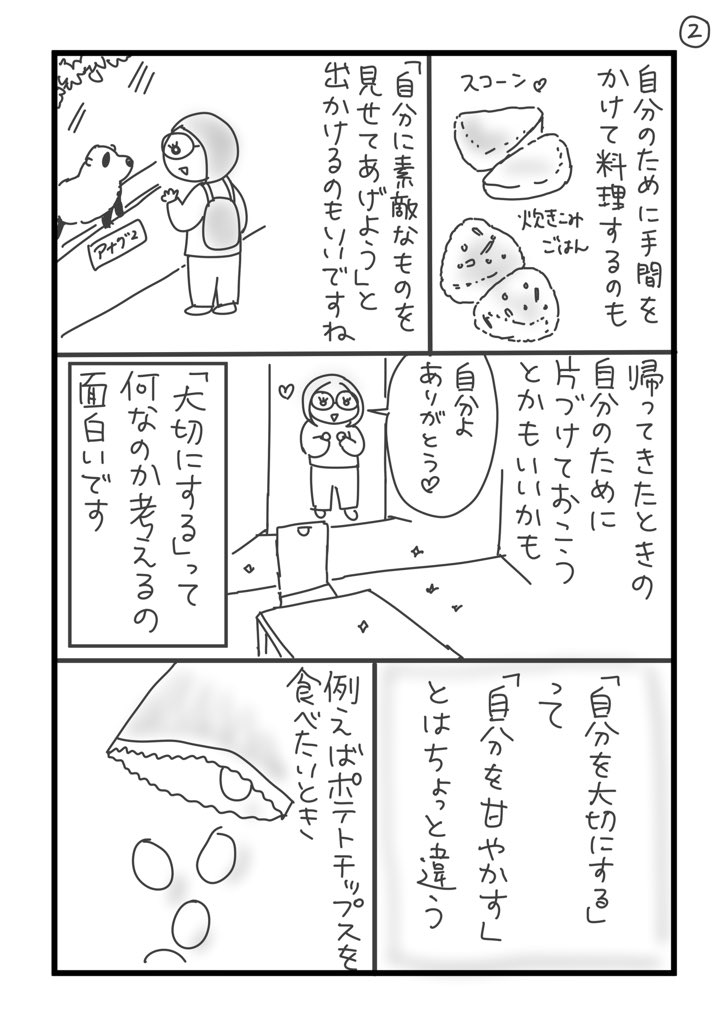 ②
自分のために手間を
かけて料理するのも
スコーン♡
炊きこみ
ごはん
「自分に素敵なものを
見せてあげよう」と
出かけるのもいいですね
アナグマ
帰ってきたときの
自分のために
片づけておこう
とかもいいかも
自分よ
ありがとう♡
「大切にする」って
何なのか考えるの
面白いです
「自分を大切にする」
って
「自分を甘やかす」
とはちょっと違う
例えばポテトチップスを
食べたいとき、